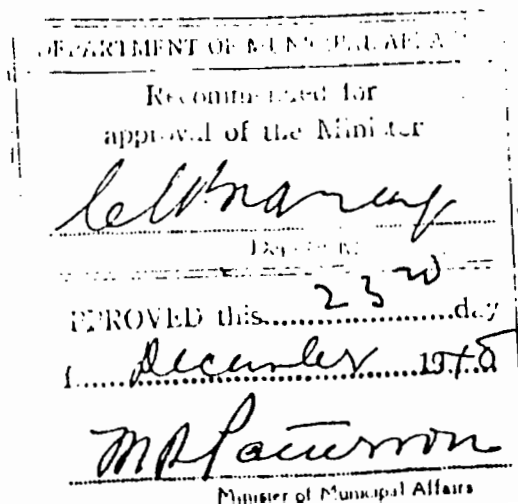 DEPARTMENT OF MUNICIPAL AFFA
Recommended for
approval of the Minister
Deputy
PPROVED this 23rd day
December 19
M R Patterson
Minister of Municipal Affairs